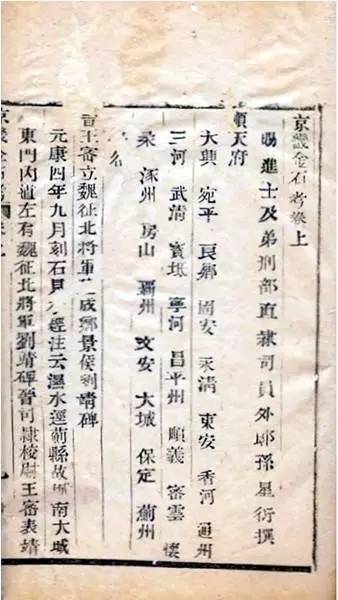 京畿金石考卷上
賜進士及第刑部直隸司員外郎孫星衍撰
順天府
大興 宛平 良鄉 固安 永清 東安 香河 通州
三河 武清 寶坻 寧河 昌平州 順義 密雲 懷
柔 涿州 房山 霸州 文安 大城 保定 薊州
名
晉王密立魏征北將軍成鄉景侯劉靖碑
元康四年九月刻石見水經注云濕水逕薊縣故城南大城
東門內道左有魏征北將軍劉靖碑晉司隸校尉王密表靖
京畿金石考